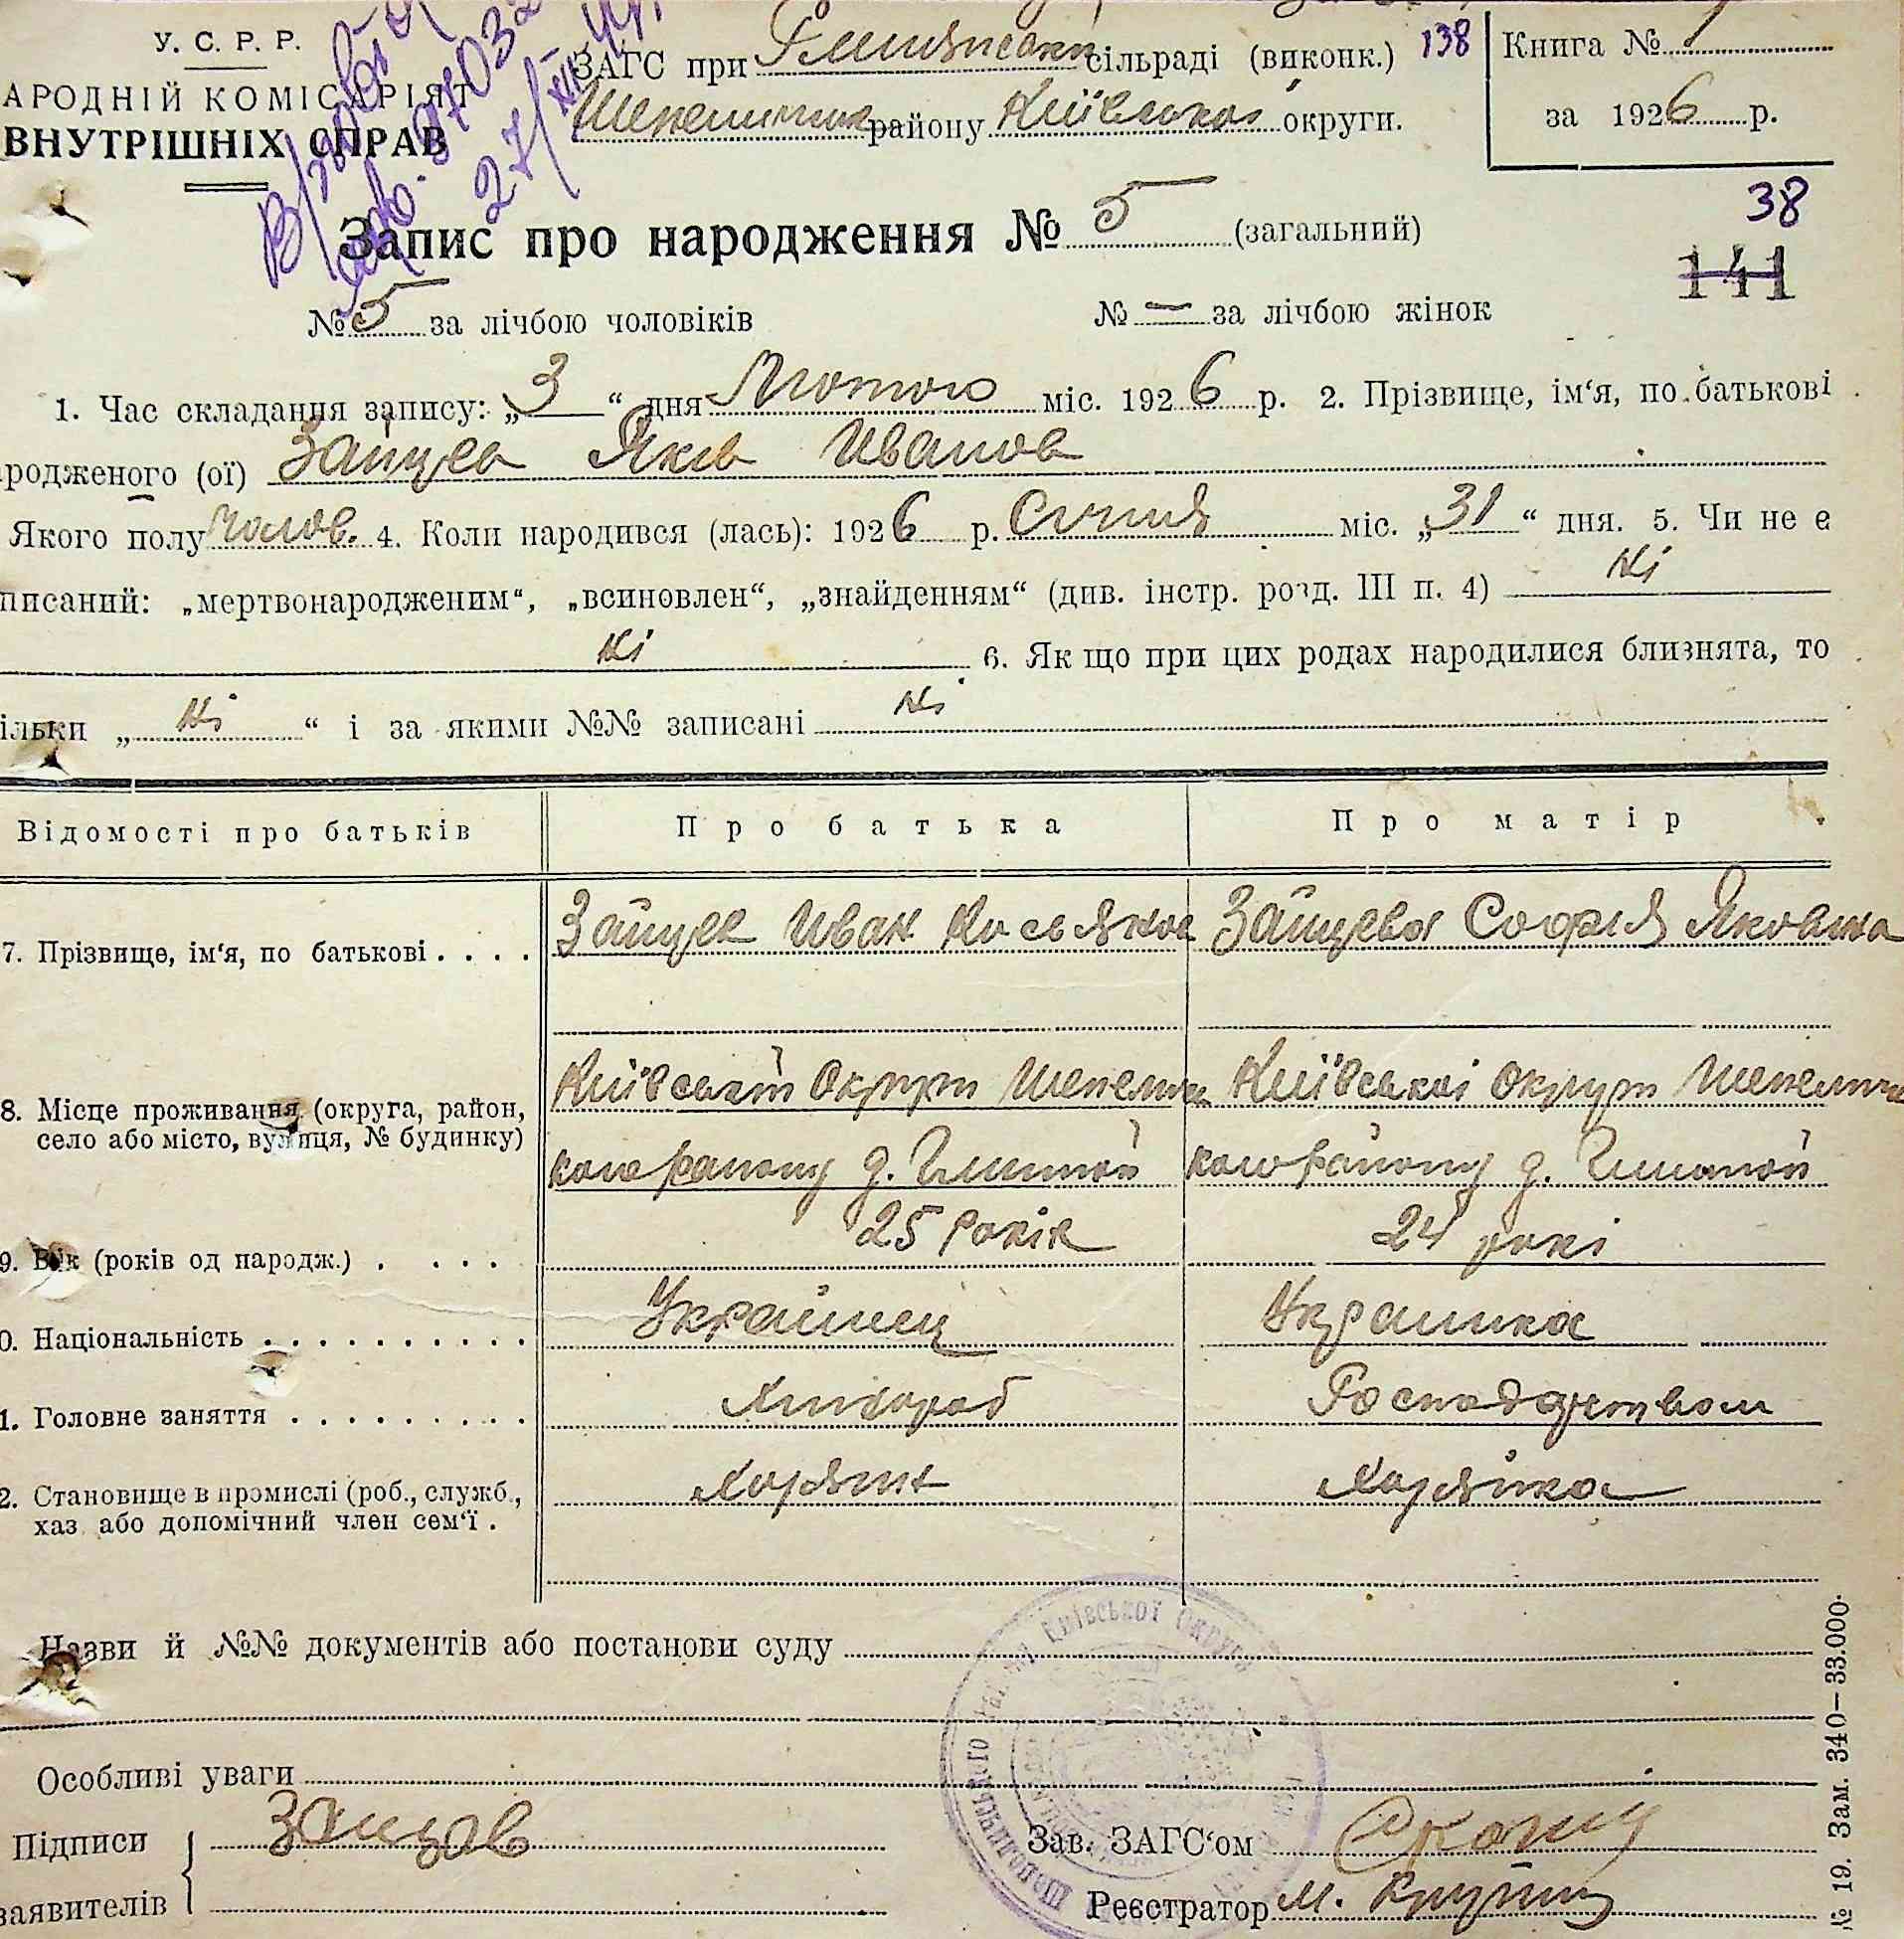 У. С. Р. Р.
АРОДНІЙ КОМІСАРІЯТ
ВНУТРІШНІХ СПРАВ
27/XII
ЗАГС при сільраді (виконк.) 138
району Київської округи.
Книга № 1
за 1926 р.
38
Запис про народження № 5 (загальний)
141
№ 5 за лічбою чоловіків № — за лічбою жінок
1. Час складання запису: „3“ дня Лютого міс. 1926 р. 2. Прізвище, ім‘я, по батькові
родженого (ої) Зайцев Яков Иванов
Якого полу чолов. 4. Коли народився (лась): 1926 р. Січня міс. „31“ дня. 5. Чи не є
писаний: „мертвонародженим“, „всиновлен“, „знайденням“ (див. інстр. розд. III п. 4) Ні
Ні 6. Як що при цих родах народилися близнята, то
ільки „Ні“ і за якими №№ записані Ні
Відомості про батьків Про батька Про матір
7. Прізвище, ім‘я, по батькові . . . . Зайцев Иван Зайцева Софія Яковна
8. Місце проживання (округа, район, село або місто, вулиця, № будинку) Київськой Округи Київської Округи
району д. району д.
9. Вік (років од народж.) . . . . 25 років 24 роки
0. Національність . . . . . . . . . . Украінец Украинка
1. Головне заняття . . . . . . . . . Хлібороб
2. Становище в промислі (роб., служб., Хозяин Хозяйка
хаз. або допомічний член сем‘ї .
Назви й №№ документів або постанови суду
Київської Округи
Особливі уваги
Підписи Зайцов Зав. ЗАГС‘ом
заявителів Реєстратор М.
№ 19. Зам. 340–33.000.